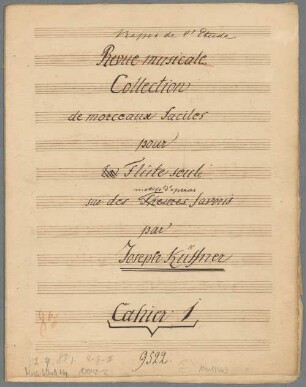 Repos de l'Etude
Revue musicale
Collection
de morceaux faciles
pour
Flûte seule
motifs d'operas
sur des Themes favoris
par
Joseph Küffner
Cahier 1
9522.